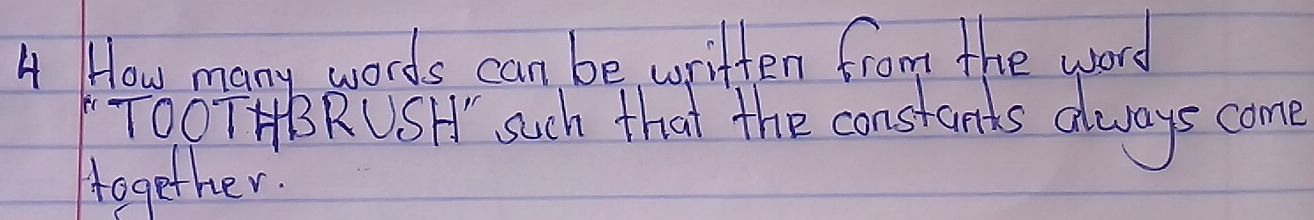 4 How many words can be written from the word
"TOOTHBRUSH" such that the constants always come
together.